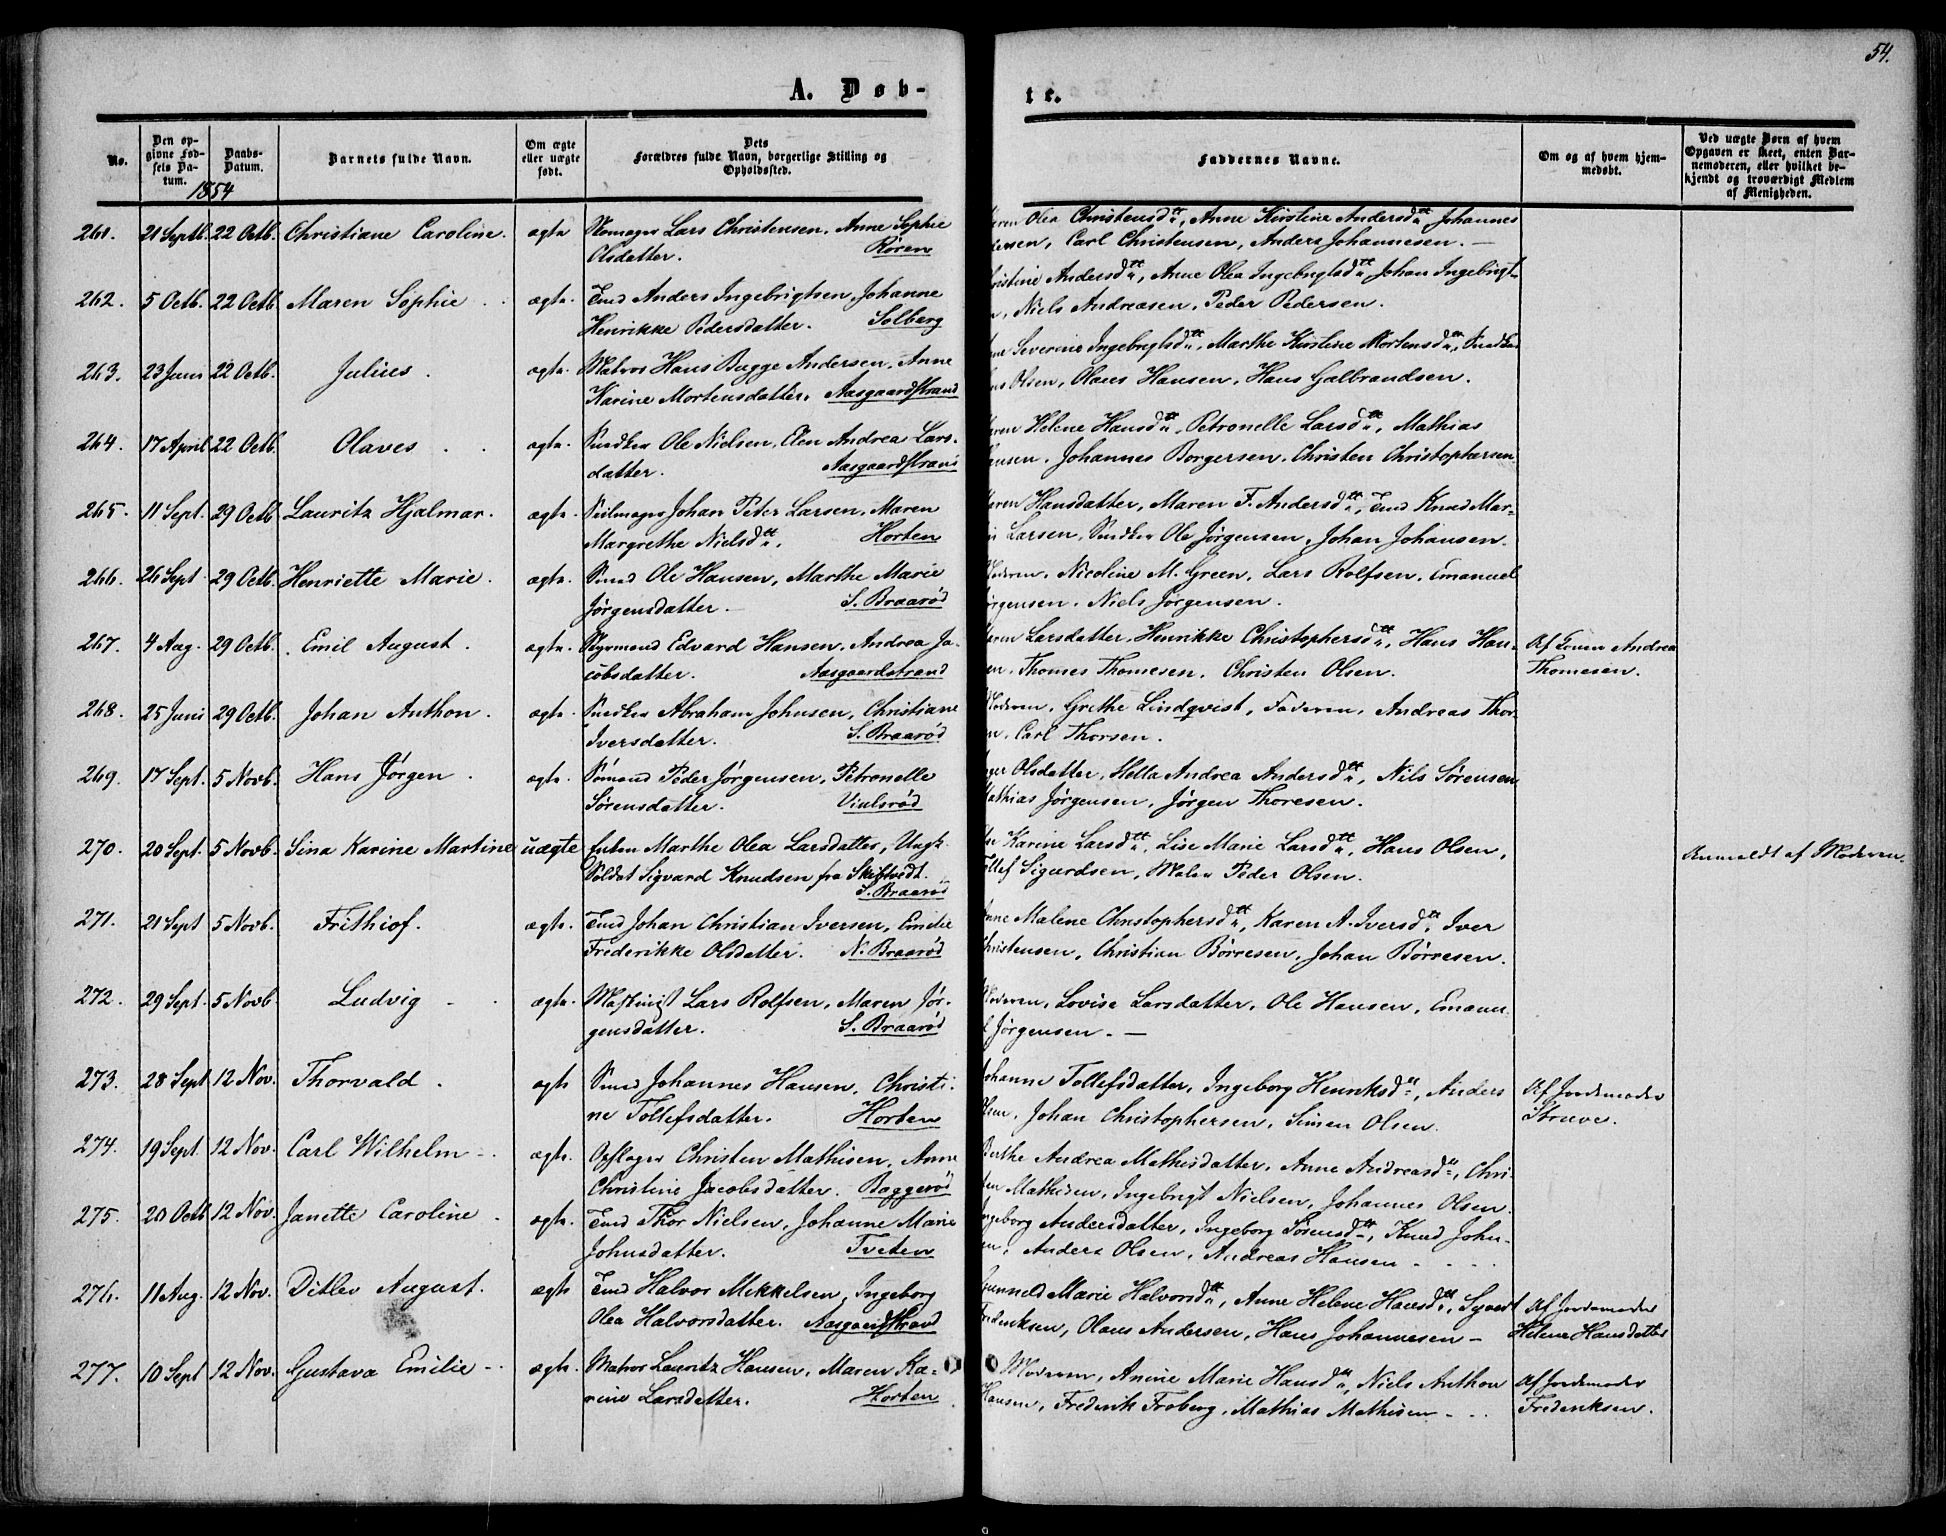 54.
A. Døb-
te.
No.
Den op-
givne Fød-
sels Da-
tum.
Daabs-
Datum.
Barnets fulde Navn.
Om ægte
eller uægte
født.
Dets
Forældres fulde Navn, borgerlige Stilling og
Opholdssted.
Faddernes Navne.
Om og af hvem hjem-
medøbt.
Ved uægte Børn af hvem
Opgaven er skeet, enten Bar-
nemoderen, eller hvilket be-
kjendt og troværdigt Medlem
af Menigheden.
1854
261. 21 Septb. 22 Octb. Christiane Caroline. ægte Skomager Lars Christensen, Anne Sophie
Olsdatter. Røren
Olea Christensdtr, Anne Kirstine Andersdtr, Johannes
Carl Christensen, Anders Johannesen. —
262. 5 Octb. 22 Octb. Maren Sophie . . ægte. Tmd Anders Ingebrigtsen, Johanne
Henrikke Pedersdatter. Solberg
Andersdtr, Anne Olea Ingebrigtsdtr, Johan Ingebrigt-
Niels Andreasen, Peder Pedersen.
263. 23 Juni 22 Octb. Julius . ægte. Matros Hans Bagge Andersen, Anne
Karine Mortensdatter. Aasgaardstrand
Severine Ingebrigtsdtr, Marthe Kirstine Mortensdtr, Snedker
Olsen, Olaus Hansen, Hans Galbrandsen.
264. 17 April 22 Octb. Olaves . . ægte. Snedker Ole Nielsen, Elen Andrea Lars-
datter. Aasgaardstrand
Helene Hansdtr, Petronelle Larsdtr, Mathias
Johannes Borgersen, Christen Christophersen
265. 11 Sept. 29 Octb Lauritz Hjalmar. ægte. Seilmager Johan Peter Larsen, Maren
Margrethe Nielsdtr. Horten
Hansdatter, Maren F. Andersdtr, Tmd Knud Mar-
Larsen, Snedker Ole Jørgensen, Johan Johansen.
266. 26 Sept 29 Octb. Henriette Marie. ægte. Smed Ole Hansen, Marthe Marie
Jørgensdatter. — S. Braarød
Moderen, Nicoline M. Green, Lars Rolfsen, Emanuel
Jørgensen, Niels Jørgensen.
267. 4 Aug. 29 Octb. Emil August . ægte. Styrmand Edvard Hansen, Andrea Ja-
cobsdatter. Aasgaardstrand
Larsdatter, Henrikke Christophersdtr, Hans Han-
Thomes Thomesen, Christen Olsen.
Af Andrea
Thomesen.
268. 25 Juni 29 Octb. Johan Anthon. ægte. Snedker Abraham Johnsen, Christiane
Iversdatter. S. Braarød
Moderen, Grethe Lindqvist, Faderen, Andreas Thor-
Carl Thorsen.
269. 17 Sept. 5 Novb. Hans Jørgen . ægte. Sømand Peder Jørgensen, Petronelle
Sørensdatter. Viulsrød
Olsdatter, Hella Andrea Andersdtr, Nils Sørensen
Mathias Jørgensen, Jørgen Thoresen.
270. 20 Sept. 5 Novb. Sina Karine Martine uægte Enken Marthe Olea Larsdatter, Ungk.
Soldat Sigvard Knudsen fra Skiftvedt.
S. Braarød
Karine Larsdtr, Lise Marie Larsdtr, Hans Olsen,
Tollef Sigurdsen, Maler Peder Olsen.
Anmeldt af Moderen.
271. 21 Sept 5 Novb. Frithiof. ægte. Tmd Johan Christian Iversen, Emelie
Frederikke Olsdatter. N. Braarød
Anne Malene Christophersdtr, Karen A. Iversdtr, Iver
Christensen, Christian Børresen, Johan Børresen.
272. 29 Sept. 5 Novb Ludvig - - ægte. Maskinist Lars Rolfsen, Maren Jør-
gensdatter. S. Braarød
Moderen, Lovise Larsdatter, Ole Hansen, Emanu-
el Jørgensen. —
273. 28 Sept 12 Nov. Thorvald . ægte Smed Johannes Hansen, Christi-
ne Tollefsdatter. Horten
Johanne Tollefsdatter, Ingeborg Henriksdtr, Anders
Olsen, Johan Christophersen, Simen Olsen.
Af Jordemoder
Struve.
274. 19 Sept. 12 Nov. Carl Wilhelm - . ægte. Opslager Christen Mathisen, Anne
Christine Jacobsdatter. Baggerød
Berthe Andrea Mathisdatter, Anne Andreasdtr, Chri-
sten Mathisen, Ingebrigt Nielsen, Johannes Olsen.
275. 20 Octb 12 Nov. Janette Caroline . ægte. Tmd Thor Nielsen, Johanne Marie
Johnsdatter. Tveten
Ingeborg Andersdatter, Ingeborg Sørensdtr, Knud John-
Anders Olsen, Andreas Hansen - . . .
276. 11 Aug. 12 Nov. Ditlev August. ægte Tmd Halvor Mikkelsen, Ingeborg
Olea Halvorsdatter. Aasgaardstrand
Gunnild Marie Halvorsdtr, Anne Helene Hansdtr, Syvert
Frederiksen, Olaus Andersen, Hans Johannesen -
Af Jordemoder
Helene Hansdatter
277. 10 Sept 12 Nov. Gustava Emilie - . ægte. Matros Lauritz Hansen, Maren Ka-
rine Larsdatter. Horten
Moderen, Anine Marie Hansdtr, Niels Anthon
Hansen, Frederik Froberg, Mathias Mathisen - . .
Af Jordemoder
Frederiksen.